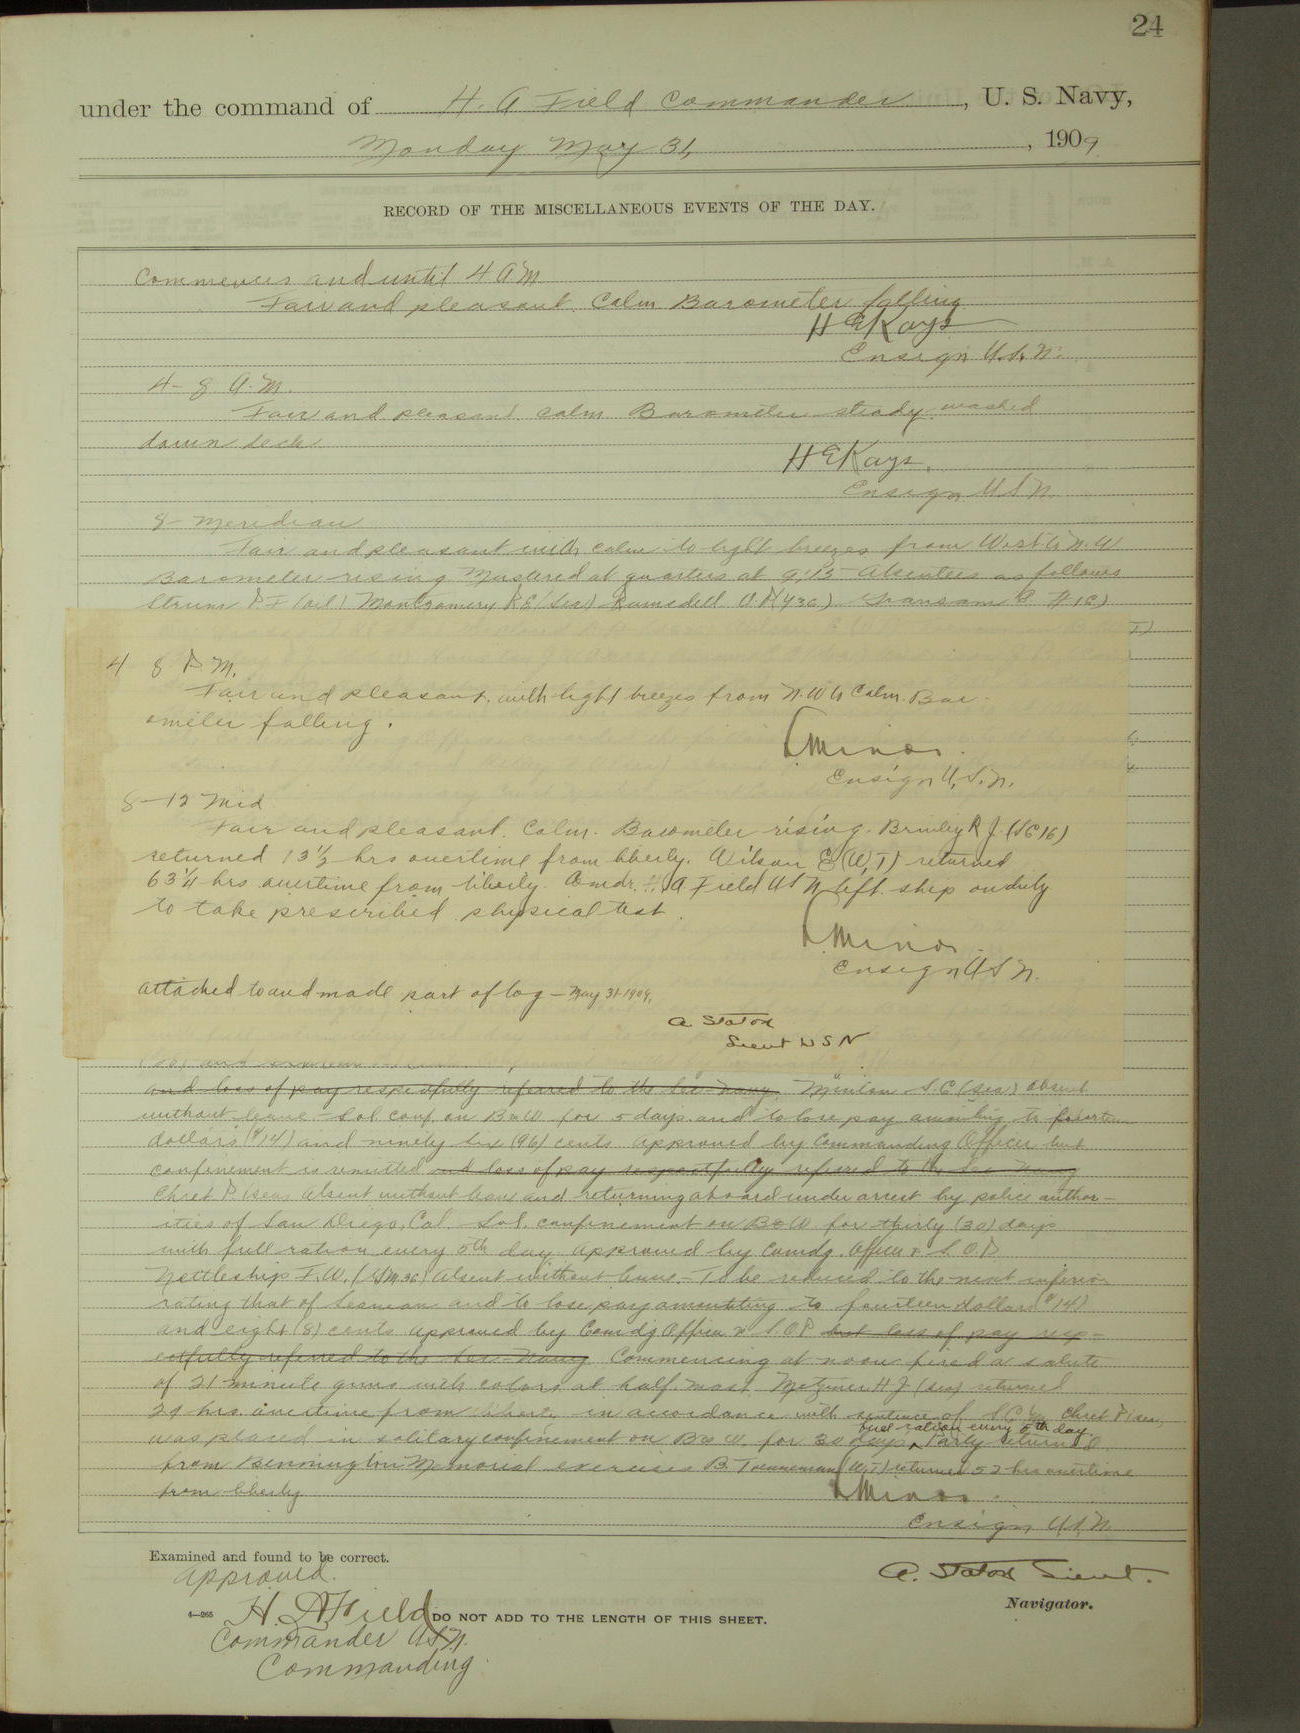 24
under the command of H. A Field Commander, U. S. Navy,
Monday May 31, 1909
RECORD OF THE MISCELLANEOUS EVENTS OF THE DAY.
Commences and until 4 A M
Fair and pleasant. Calm Barometer falling
H E Kays
Ensign U.S. N.
4 - 8 A. M.
Fair and pleasant calm Barometer steady washed
down deck
H E Kays.
Ensign U S N.
8 - Meridian
Fair and pleasant with calm to light breezes from West to N. W
Barometer rising Mustered at quarters at 9:15 Absentees as follows
Montgomery R E (Sea) Ramsdell
4 8 P M.
Fair and pleasant. with light breezes from N. W to Calm. Bar-
ometer falling.
Minor.
Ensign U. S. N.
8 - 12 Mid
Fair and pleasant. Calm. Barometer rising. Brinley R J. (SC 16)
returned 13 1/2 hrs overtime from liberty. Wilson E (W,T) returned
63 1/4 hrs overtime from liberty. Comdr. H A Field U S N left ship on duty
to take prescribed physical test.
Minor.
Ensign U S N.
attached to and made part of log - May 31-1909.
A. Staton
Lieut U S N
and loss of pay respectfully referred to the Sec-Navy. Minton S. C (Sea) absent
without leave Sol. conf. on B & W. for 5 days and to lose pay amounting to fourteen
dollars ($14) and ninety six (96) cents approved by Commanding Officer but
confinement is remitted and loss of pay respectfully referred to the Sec Navy
Chret P (Sea) Absent without leave and returning aboard under arrest by police author-
ities of San Diego, Cal. Sol. confinement on B & W for thirty (30) days
with full ration every 5th day approved by Comdg. Officer & S. O. P
Nettleship F. W. absent without leave - To be reduced to the next inferior
rating that of Seaman and to lose pay amounting to fourteen dollars ($14)
and eight (8) cents approved by Comdg Officer & S. O P but loss of pay resp-
ectfully referred to the Sec-Navy Commencing at noon fired a salute
of 21 minute guns with colors at half mast. Metzner H J (sea) returned
29 hrs. overtime from liberty in accordance with sentence of S C M Chret P (sea)
full ration every 5th day
was placed in solitary confinement on B & W. for 30 days Party returned
from Bennington Memorial exercises B. Trenneman (W.T) returned 52 hrs overtime
from liberty
Minor.
Ensign U.S.N.
Examined and found to be correct.
Approved.
A. Staton Lieut.
Navigator.
4-265
H. A Field
DO NOT ADD TO THE LENGTH OF THIS SHEET.
Commander U.S.N.
Commanding